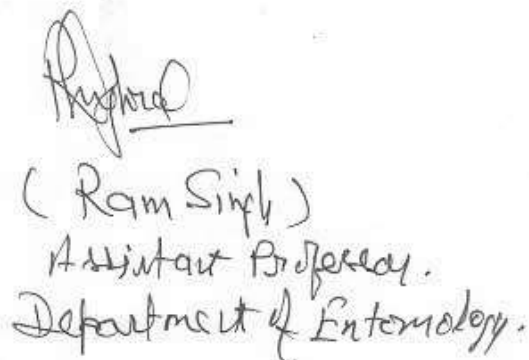 ( Ram Singh )
Assistant Professor.
Department of Entomology.